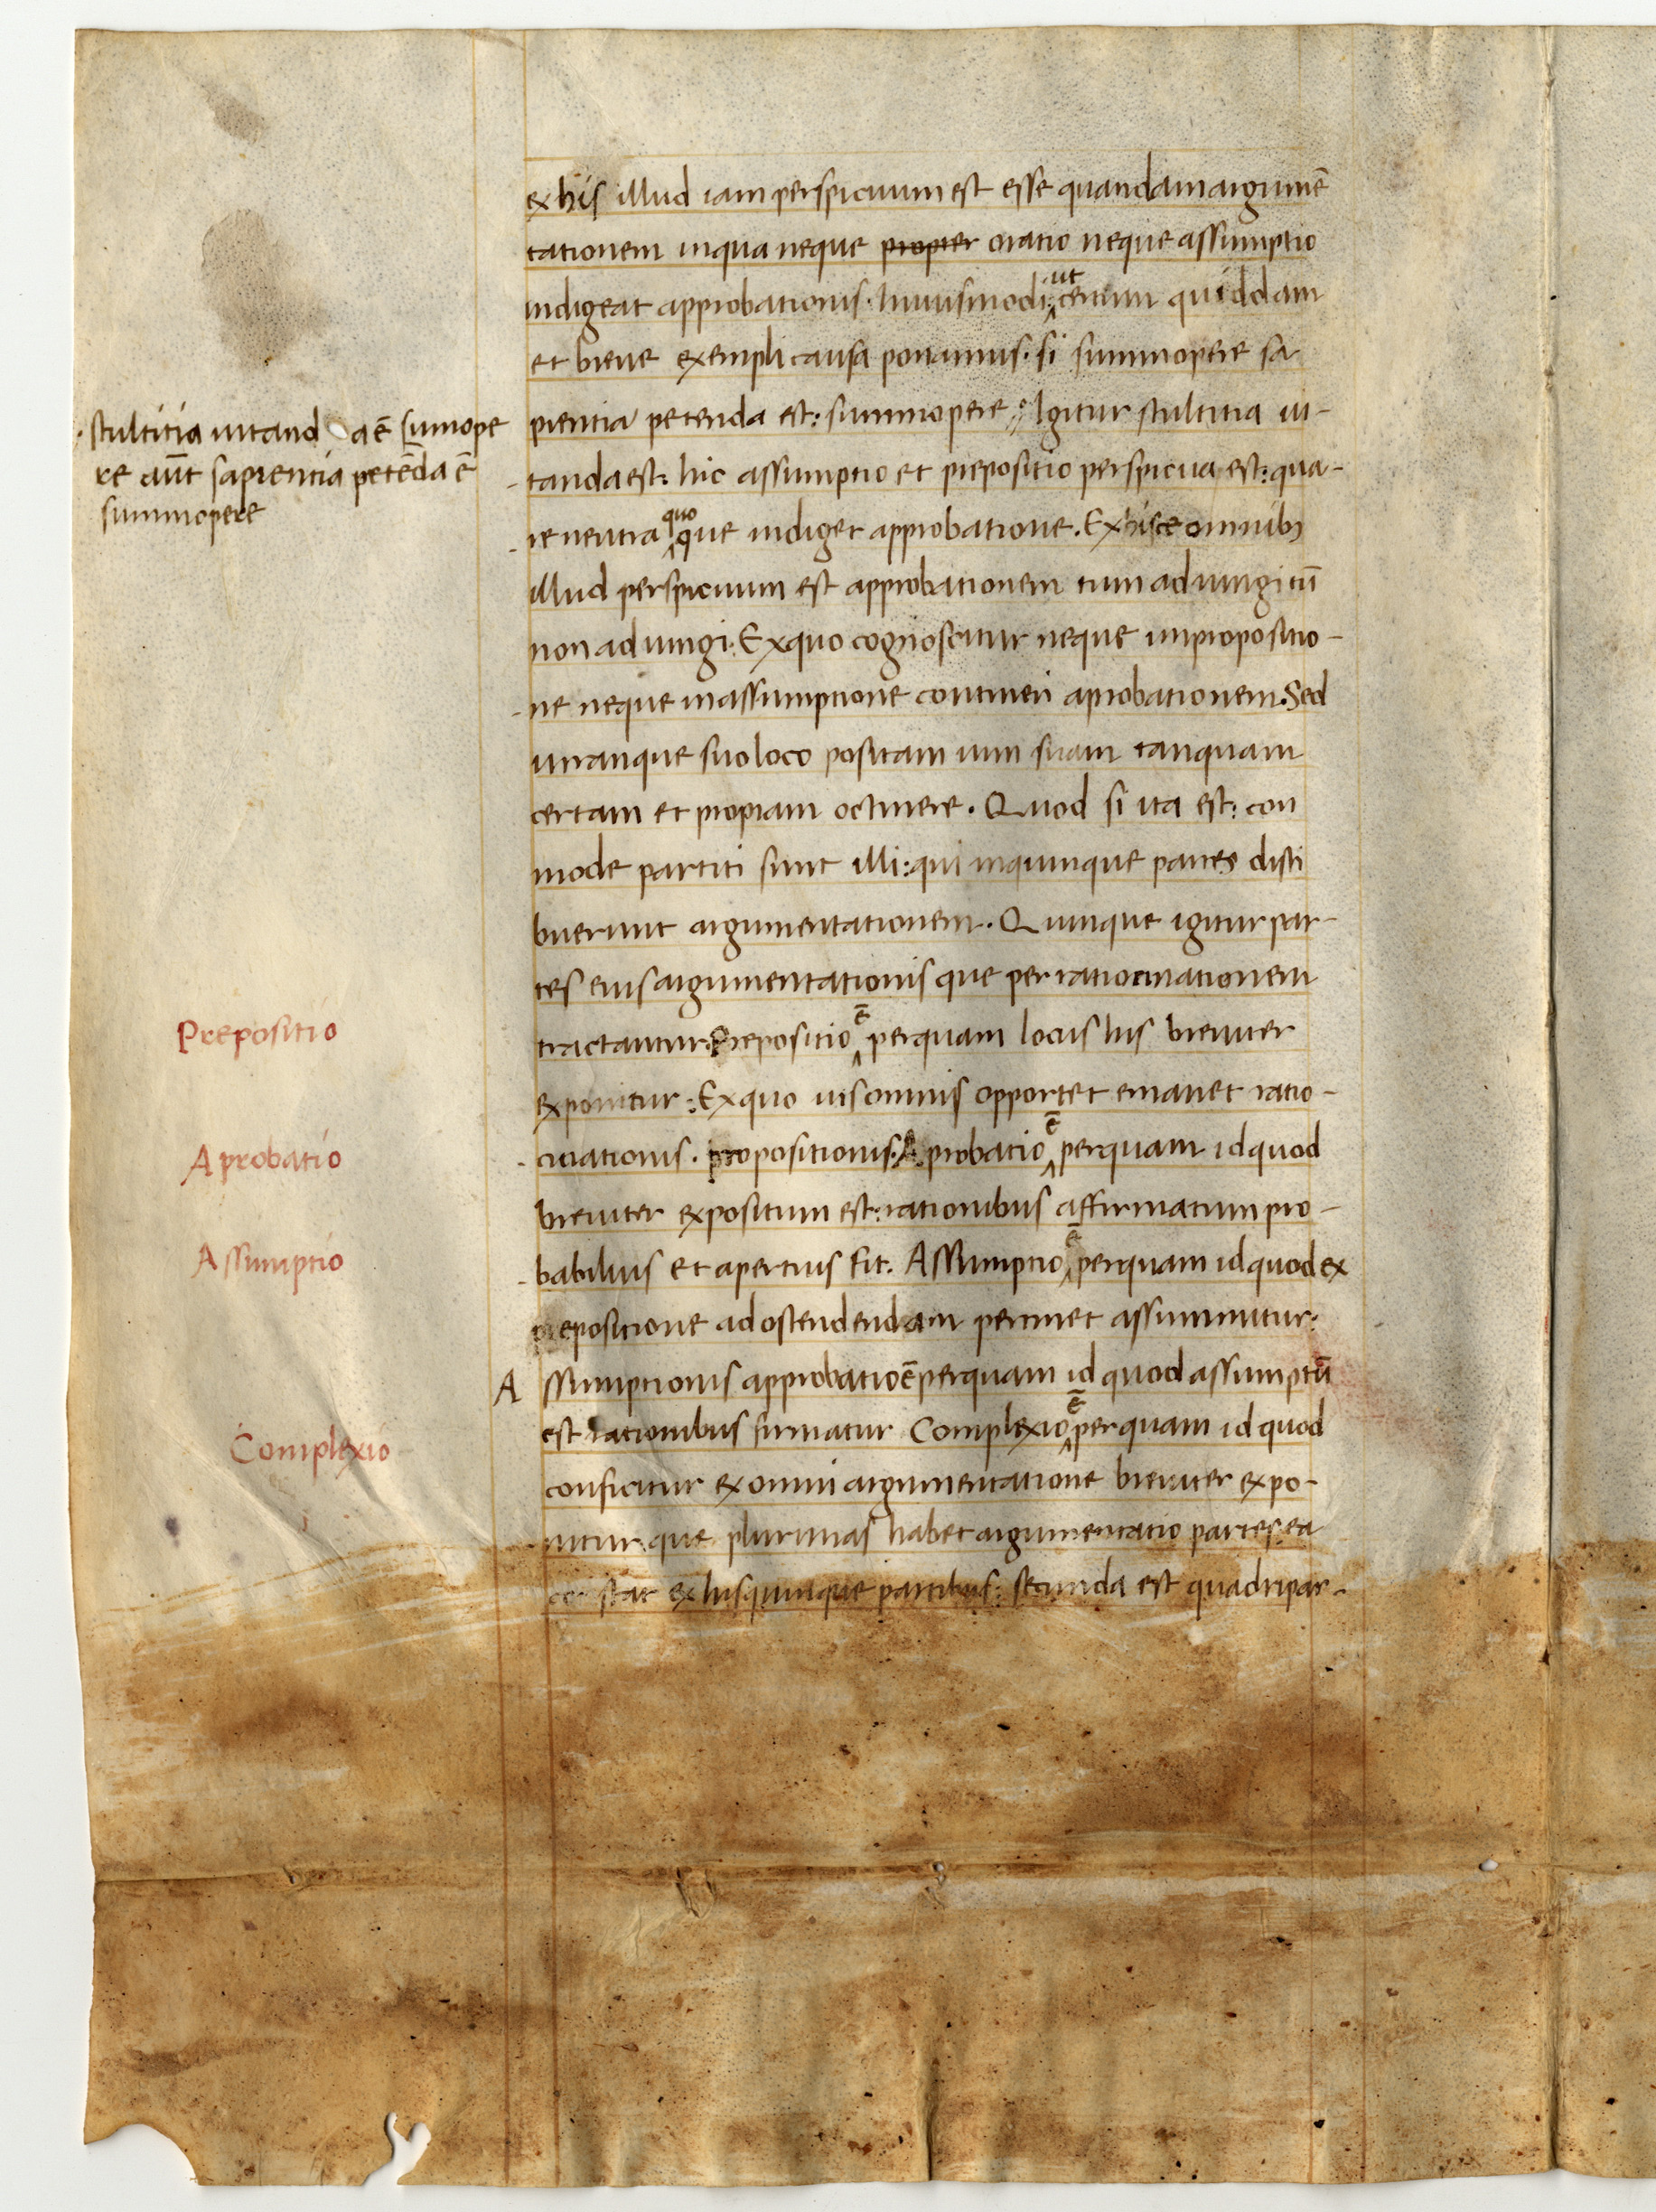 ex his illud iam perspicuum est esse quandam argumē
tationem in qua neque propter oratio neque assumptio
indigeat approbationis. huiusmodi: ut certum quiddam
et breue exempli causa ponamus. si summopere sa
pientia petenda est: summopere Igitur stultitia ui-
tanda est: hic assumptio et prepositio perspicua est: qua-
re neutra quoque indiget approbatione. Ex hisce omnibꝫ
illud perspicuum est approbationem tum adiungi tū
non adiungi. Ex quo cognoscitur neque in propositio-
ne neque in assumptione contineri aprobationem. Sed
utranque suo loco positam uim suam tanquam
certam et propriam octinere. Quod si ita est: con
mode partiti sunt illi: qui in quinque partes disti
buerunt argumentationem. Quinque igitur par-
tes eius argumentationis que per ratiocinationem
tractantur. Prepositio ē per quam locus his breuiter
exponitur: Ex quo uis omnis opportet emanet ratio-
cinationis. propositionis. Aprobatio ē per quam id quod
breuiter expositum est: rationibus affirmatum pro-
babilius et apertius fit. Assumptio ē per quam id quod ex
prepositione ad ostendendam perinet assummitur:
Assumptionis approbatio ē per quam id quod assumptū
est rationibus firmatur Complexio ē per quam id quod
conficitur ex omni argumentatione breuiter expo-
nitur. que plurimas habet argumentatio partes. ea
constat ex his quinque partibus: secunda est quadripar-
stultitia uitanda ē sumope
re aūt sapientia petēda ē
summopere
Prepositio
Aprobatio
Assumptio
Complexio